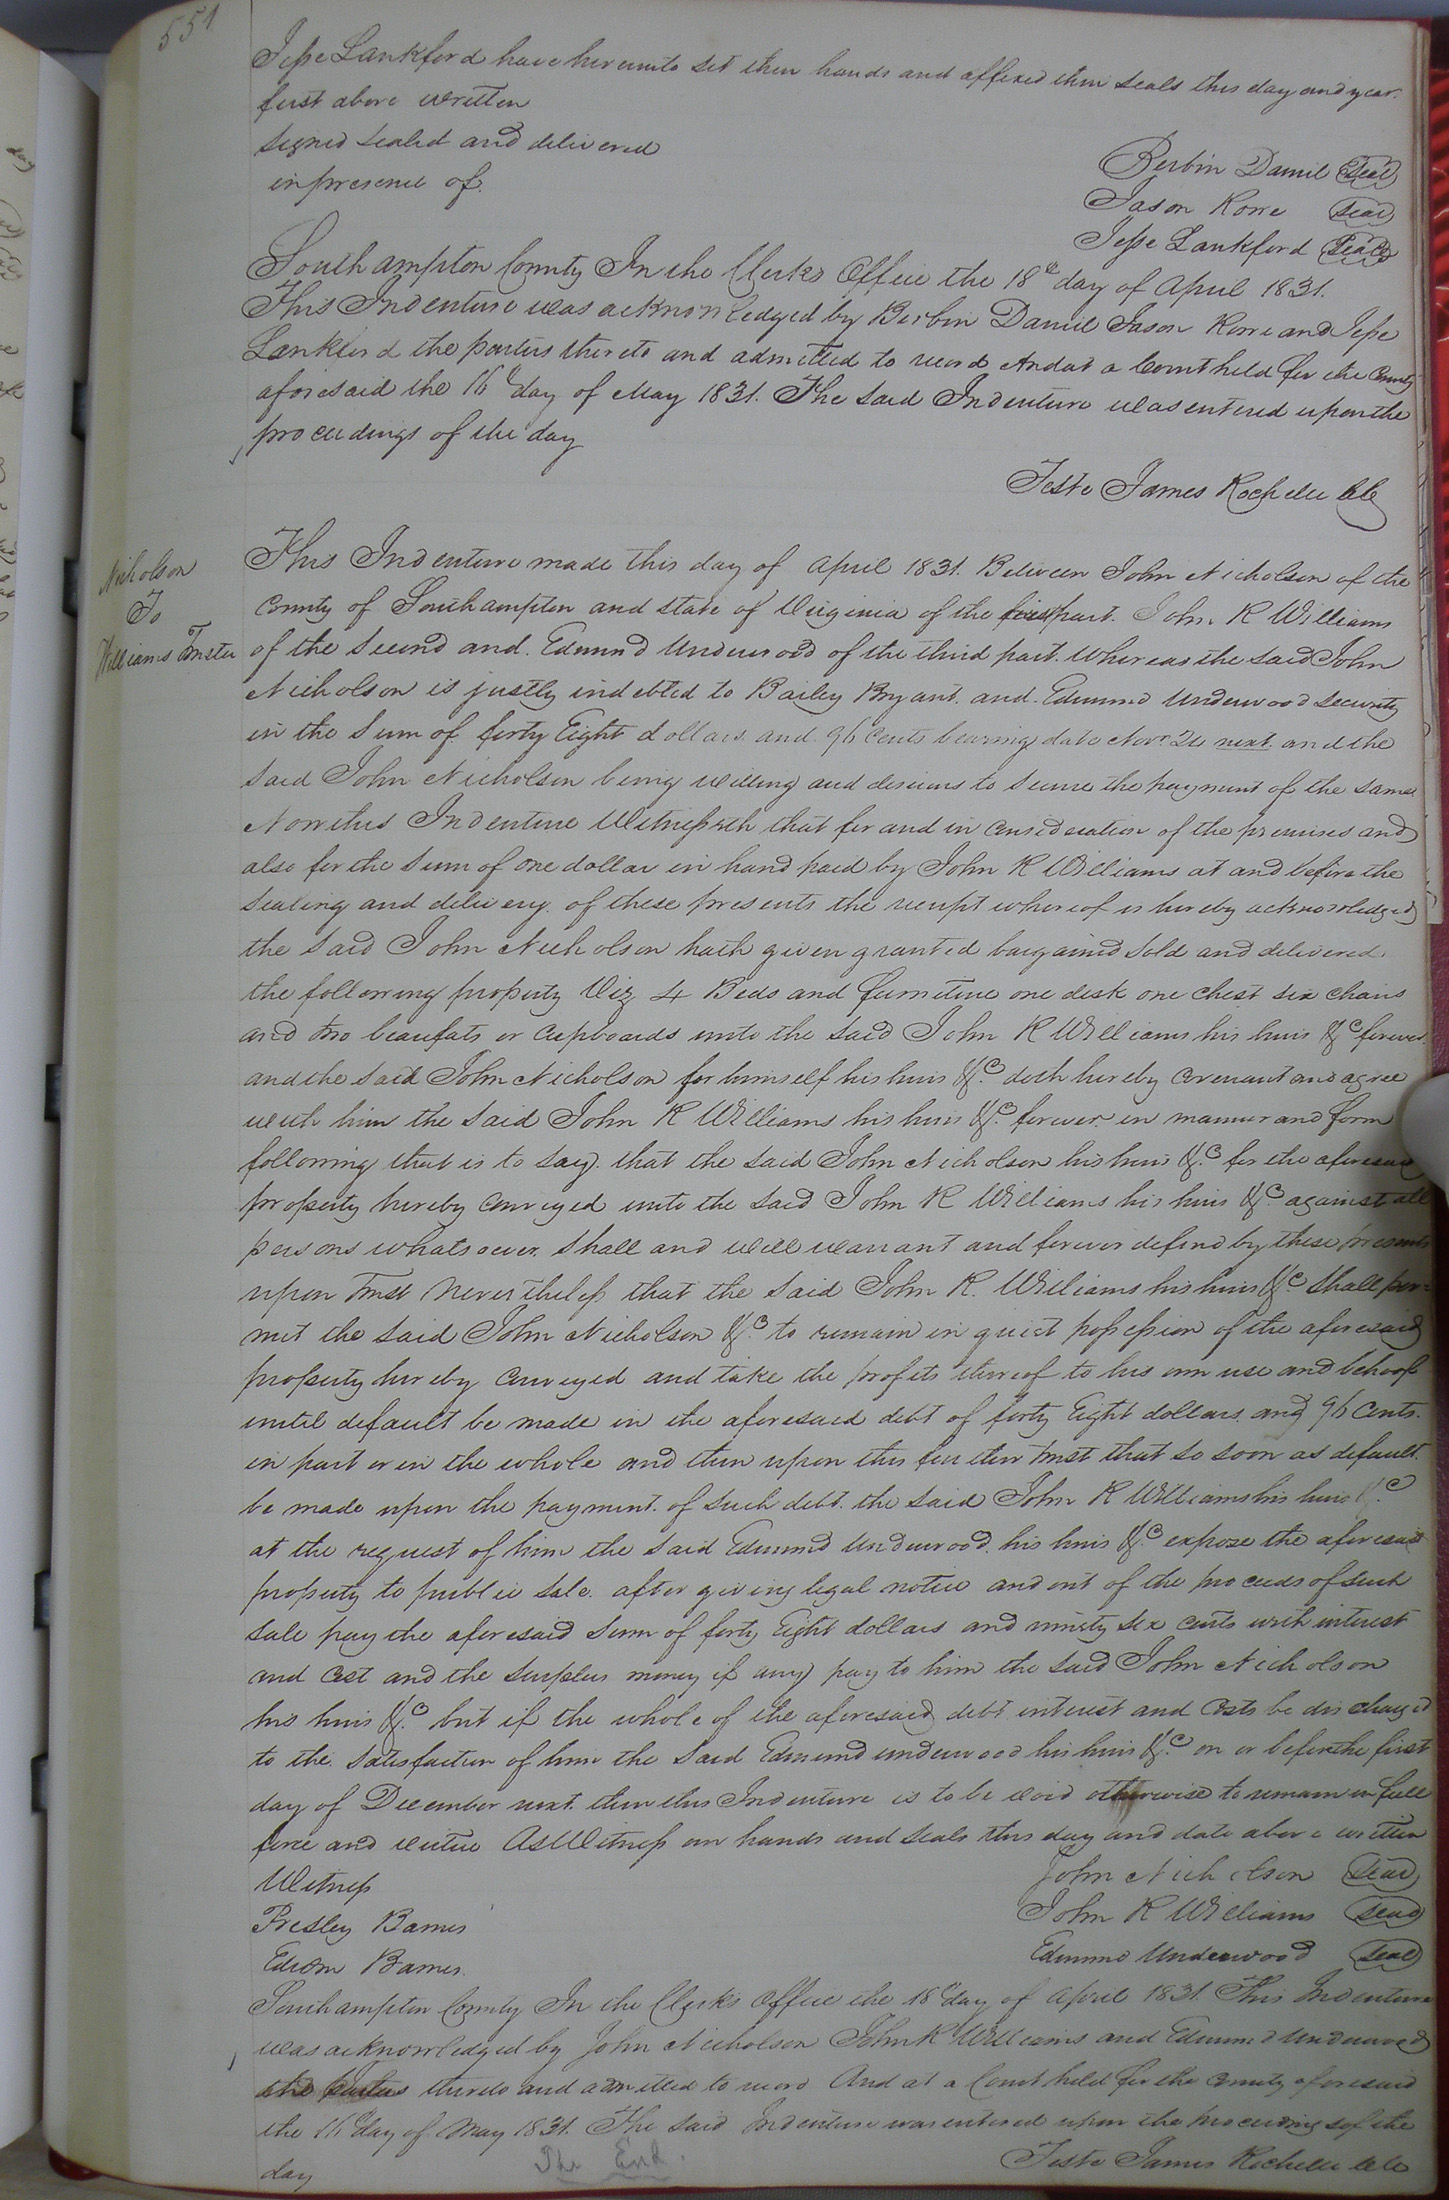 551
Jesse Lankford have hereunto set their hands and affixed their seals this day and year
first above written
signed sealed and delivered
in presence of.
Berbin Daniel Seal
Jason Rowe Seal
Jesse Lankford Seal
Southampton County In the Clerks Office the 18th day of April 1831.
This Indenture was acknowledged by Berbin Daniel Jason Rowe and Jesse
Lankford the parties thereto and admitted to record And at a Court held for the County
aforesaid the 16th day of May 1831. The said Indenture was entered upon the
proceedings of the day
Teste James Rochelle CC
Nicholson
To
Williams Trustee
This Indenture made this day of April 1831. Between John Nicholson of the
County of Southampton and state of Virginia of the first part. John R Williams
of the second and. Edmund Underwood of the third part. Whereas the said John
Nicholson is justly indebted to Bailey Bryant. and. Edmund Underwood security
in the sum of forty Eight dollars. and. 96 cents bearing date Novr. 26 next. and the
said John Nicholson being willing and desirous to secure the payment of the same
Now this Indenture Witnesseth that for and in consideration of the premises and
also for the sum of one dollar in hand paid by John R Williams at and before the
sealing and delivery. of these presents the receipt whereof is hereby acknowledged
the said John Nicholson hath given granted bargained sold and delivered.
the following property Viz 4 Beds and furniture one desk one chest six chairs
and two beaufats or cupboards unto the said John R Williams his heirs &c forever
and the said John Nicholson for himself his heirs &c. doth hereby covenant and agree
with him the said John R Williams his heirs &c. forever in manner and form
following that is to say. that the said John Nicholson his heirs &c for the aforesaid
property hereby conveyed unto the said John R Williams his heirs &c against all
persons whatsoever. shall and will warrant and forever defend by these presents
upon trust nevertheless that the said John R. Williams his heirs &c shall per=
mit the said John Nicholson &c. to remain in quiet possession of the aforesaid
property hereby conveyed and take the profits thereof to his own use and behoof
until default be made in the aforesaid debt of forty Eight dollars. and 96 Cents.
in part or in the whole and then upon this further trust that so soon as default.
be made upon the payment. of such debt. the said John R Williams his heirs &c
at the request of him the said Edmund Underwood. his heirs &c. expose the aforesaid
property to public sale. after giving legal notice and out of the proceeds of such
sale pay the aforesaid sum of forty Eight dollars and ninety six cents with interest
and cost and the surplus money if any pay to him the said John Nicholson
his heirs &c. but if the whole of the aforesaid debt interest and costs be discharged
to the satisfaction of him the said Edmund underwood his heirs &c on or before the first
day of December next. then this Indenture is to be void otherwise to remain in full
force and virtue As Witness our hands and seals this day and date above written
Witness
Presley Barnes
Edwin Barnes.
John Nicholson Seal
John R Williams Seal
Edmund Underwood Seal
Southampton County In the Clerks Office the 18th day of April 1831. This Indenture
was acknowledged by John Nicholson John R Williams and Edmund Underwood
the parties thereto and admitted to record And at a Court held for the County aforesaid
the 16th day of May 1831. The said Indenture was entered upon the proceedings of the
day
Teste James Rochelle CC
The End.